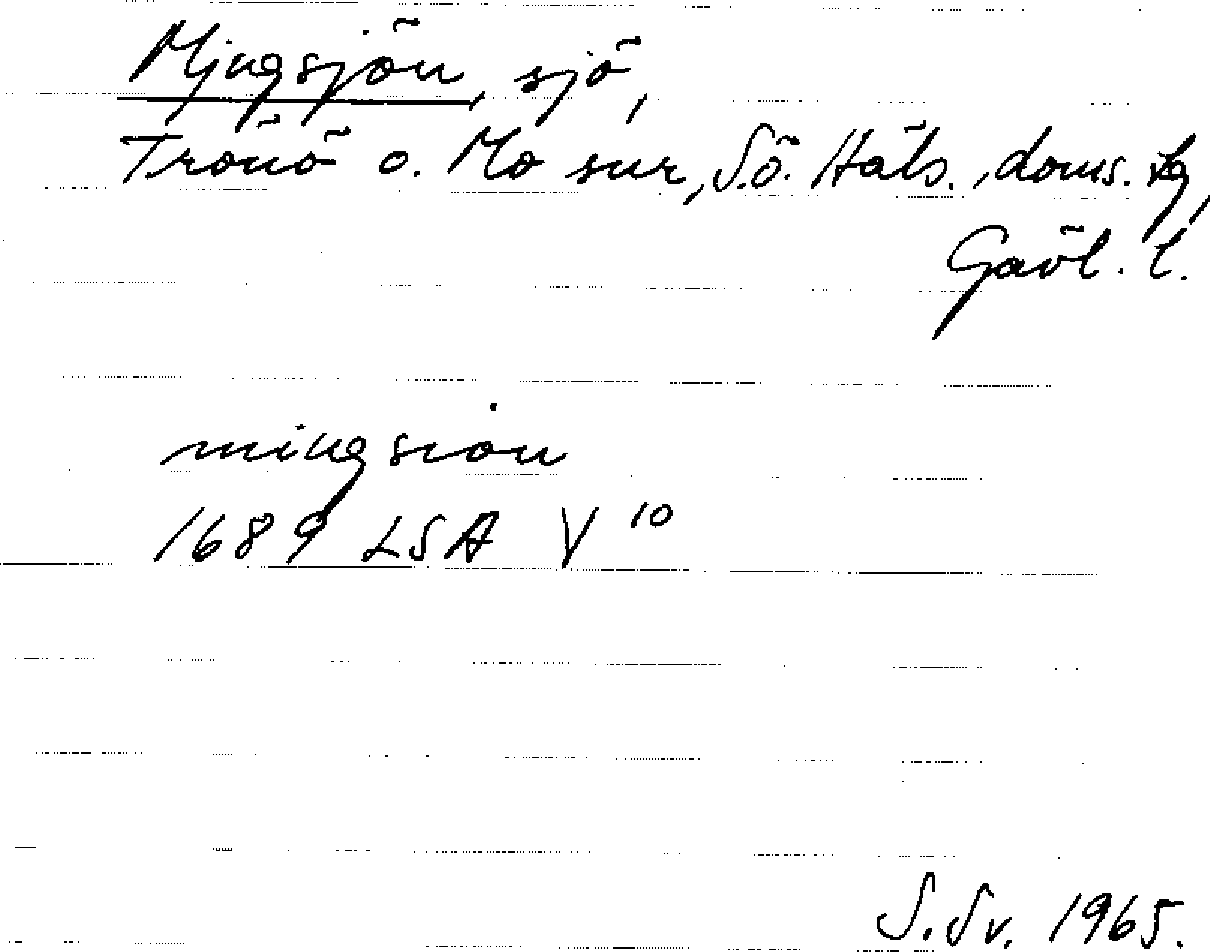 Mjngsjön, sjö,
Trönö o. Mo snr, S.ö. Häls., doms. sg,
Gävl. l.
mingsion
1689 LSA V 10
S. Sv. 1965.